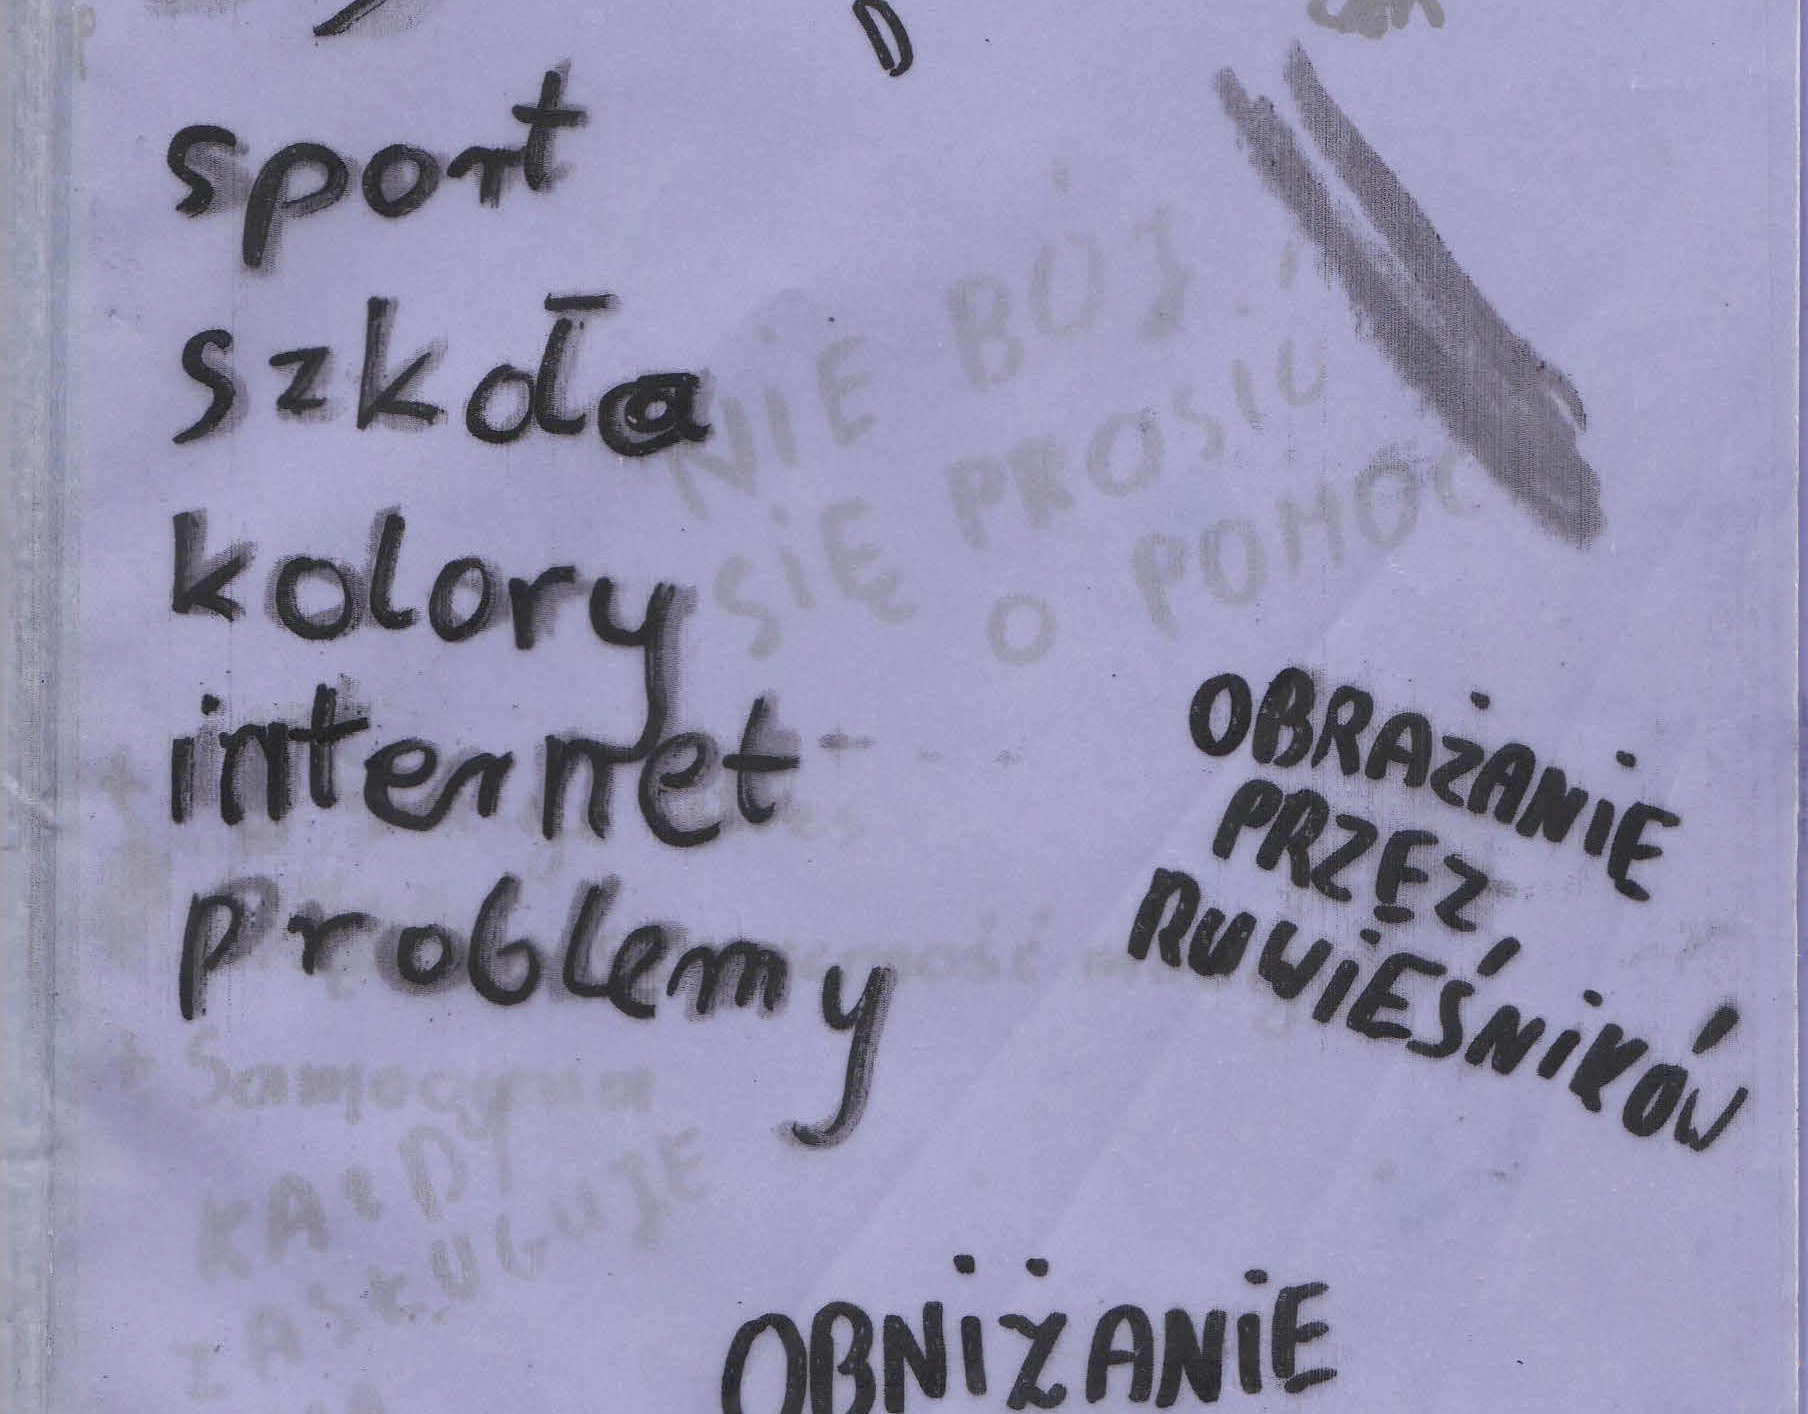 sport
szkoła
kolory
internet
problemy
NIE BÓJ
SIĘ PROSIĆ
O POMOC
OBRAŻANIE
PRZEZ
RUWIEŚNIKÓW
KAŻDY
ZASŁUGUJE
OBNIŻANIE